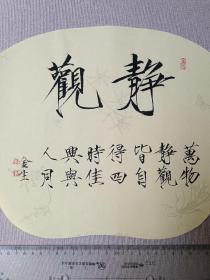 靜觀
萬物
靜觀
皆自
得四
時佳
興與
人同